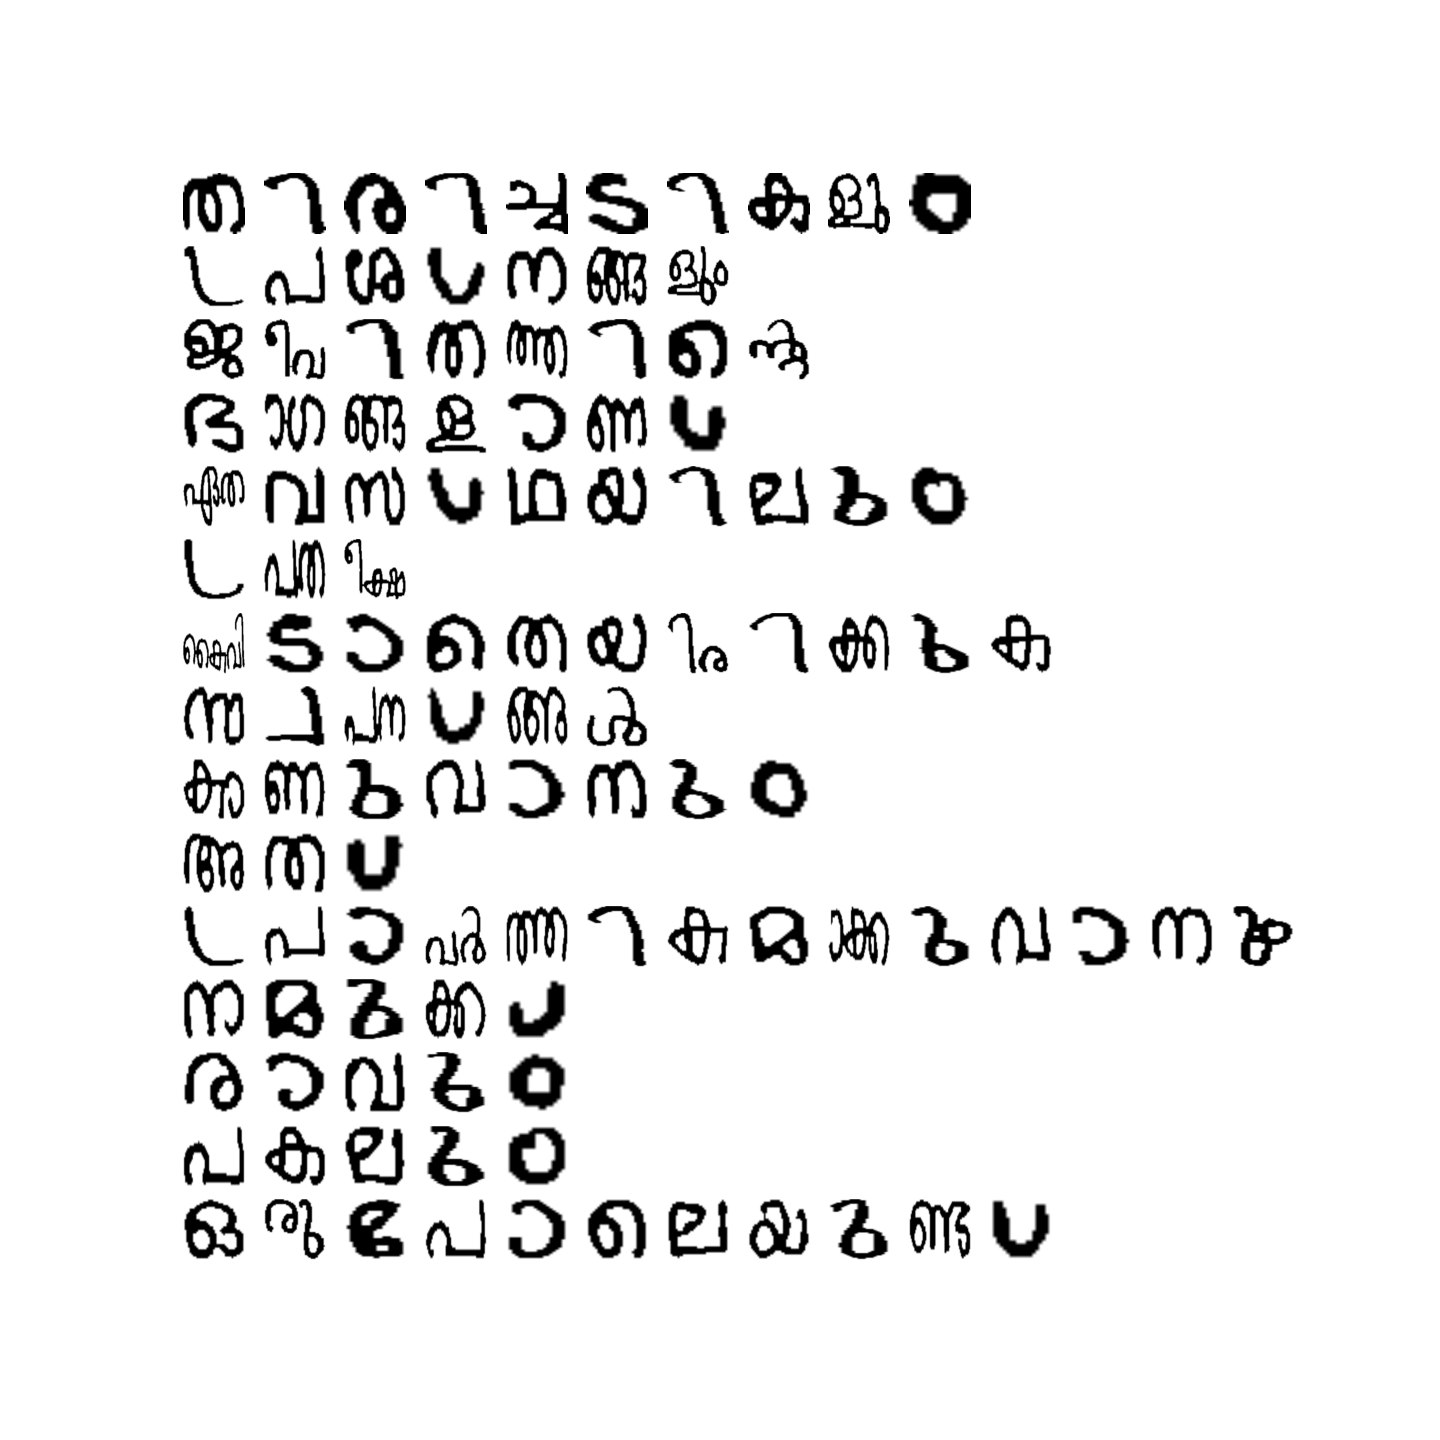 തിരിച്ചടികളും
പ്രശ്നങ്ങളും
ജീവിതത്തിന്റെ
ഭാഗങ്ങളാണ്
ഏതവസ്ഥയിലും
പ്രതീക്ഷ
കൈവിടാതെയിരിക്കുക
സ്വപ്നങ്ങൾ
കാണുവാനും
അത്
പ്രാവർത്തികമാക്കുവാനും
നമുക്ക്
രാവും
പകലും
ഒരുപോലെയുണ്ട്